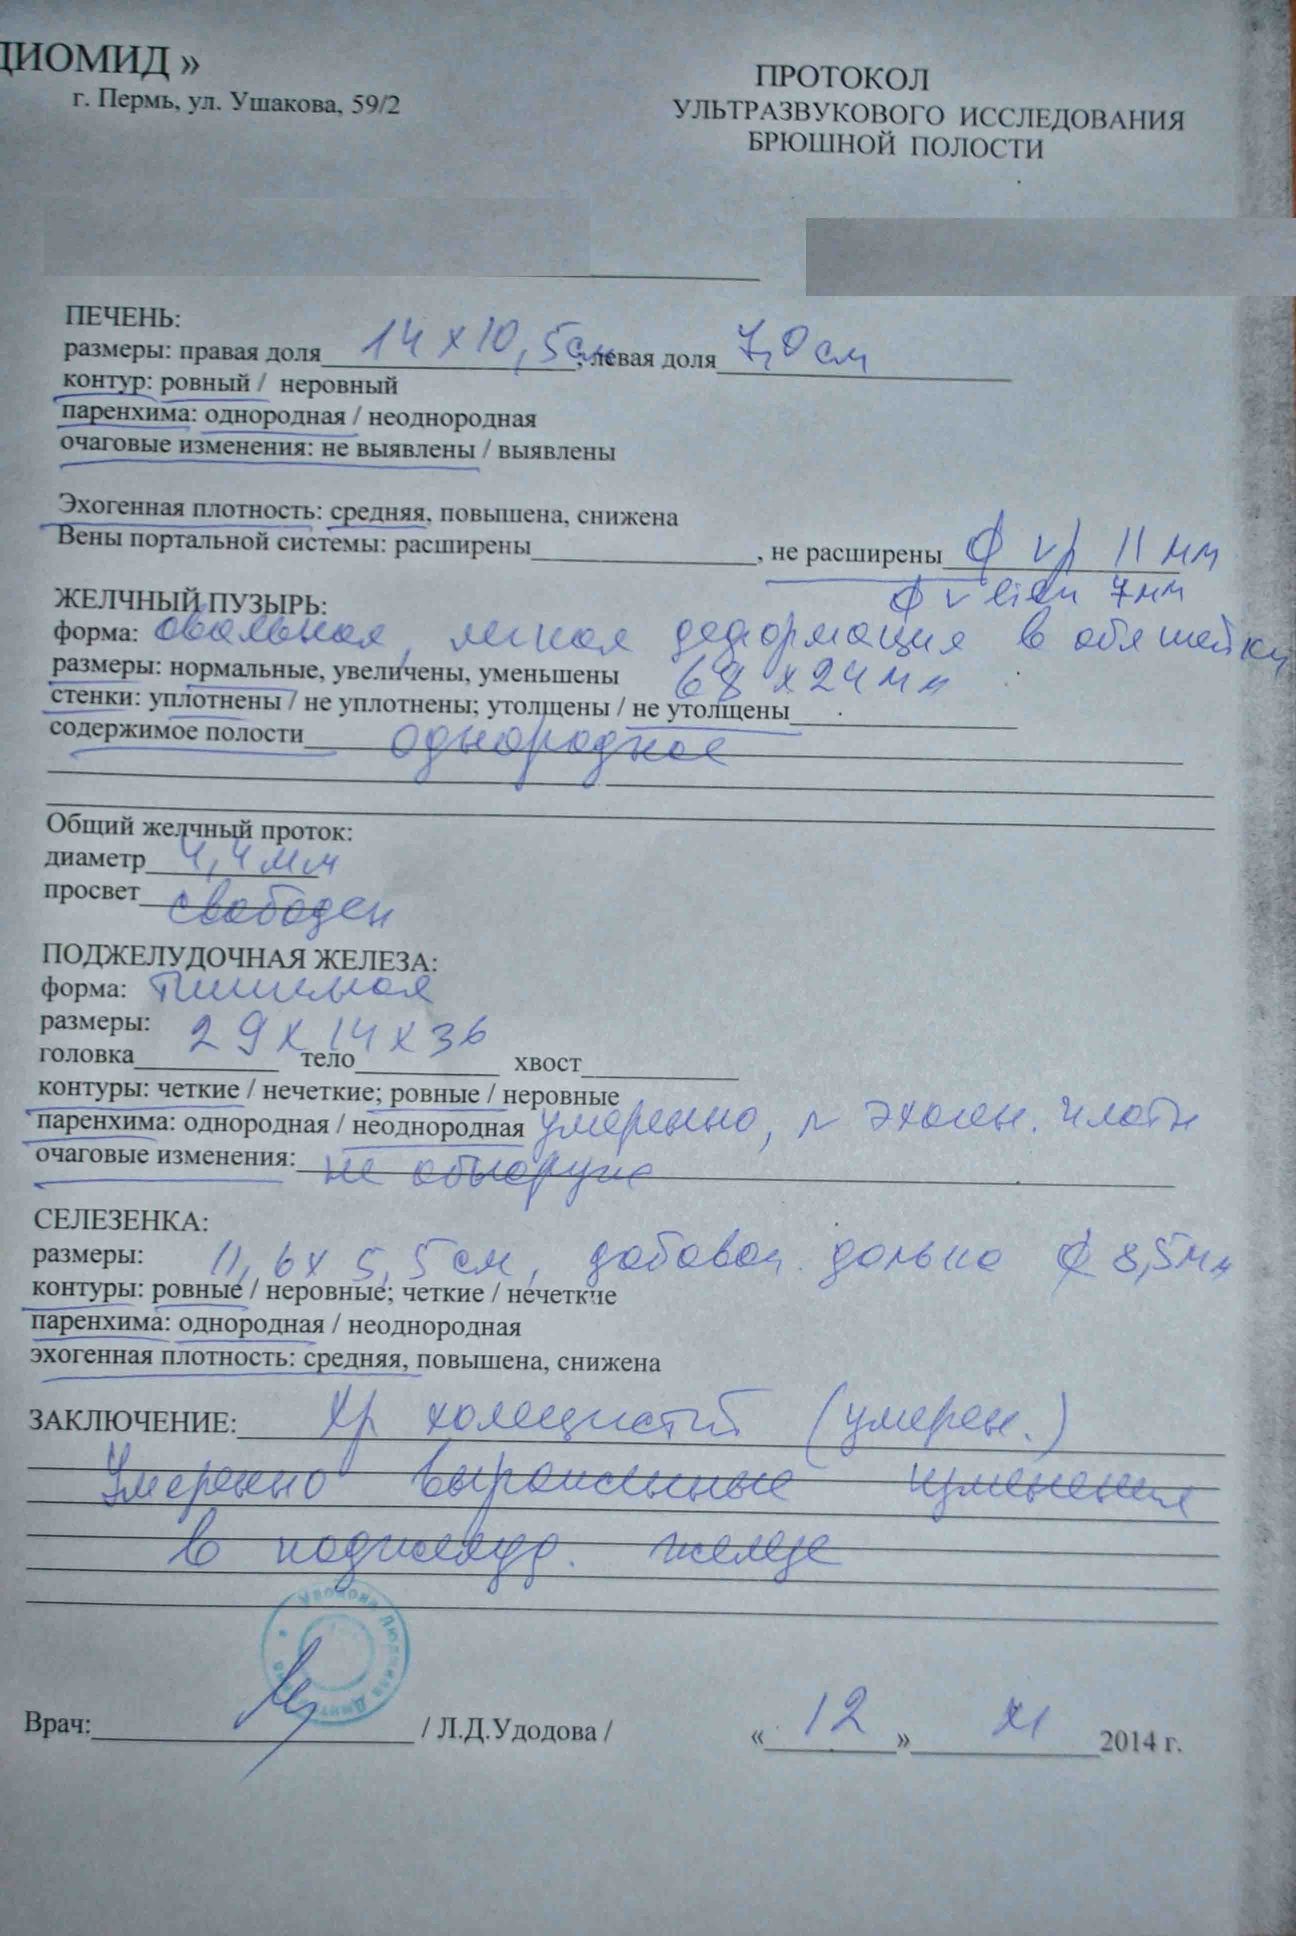 ДИОМИД »
г. Пермь, ул. Ушакова, 59/2
ПРОТОКОЛ
УЛЬТРАЗВУКОВОГО ИССЛЕДОВАНИЯ
БРЮШНОЙ ПОЛОСТИ
ПЕЧЕНЬ:
размеры: правая доля 14 х 10,5см, левая доля 7,0 см
контур: ровный / неровный
паренхима: однородная / неоднородная
очаговые изменения: не выявлены / выявлены
Эхогенная плотность: средняя, повышена, снижена
Вены портальной системы: расширены____, не расширены ϕ vp 11 мм
ϕ v lien 7мм
ЖЕЛЧНЫЙ ПУЗЫРЬ:
форма: овальная, легкая деформация в обл шейки
размеры: нормальные, увеличены, уменьшены 68 х 24 мм
стенки: уплотнены / не уплотнены; утолщены / не утолщены
содержимое полости однородное
Общий желчный проток:
диаметр 4,4 мм
просвет свободен
ПОДЖЕЛУДОЧНАЯ ЖЕЛЕЗА:
форма: типичная
размеры: 29 х 14 х 36
головка____ тело____ хвост____
контуры: четкие / нечеткие; ровные / неровные
паренхима: однородная / неоднородная умеренно, эхоген. плотн
очаговые изменения: не обнаруж
СЕЛЕЗЕНКА:
размеры: 11,6 х 5,5 см, добавоч. долька ϕ 8,5мм
контуры: ровные / неровные; четкие / нечеткие
паренхима: однородная / неоднородная
эхогенная плотность: средняя, повышена, снижена
ЗАКЛЮЧЕНИЕ: Хр холецистит (умерен.)
Умеренно выраженные изменения
в поджелуд. железе
Врач:____ / Л.Д.Удодова / « 12 » XI 2014 г.